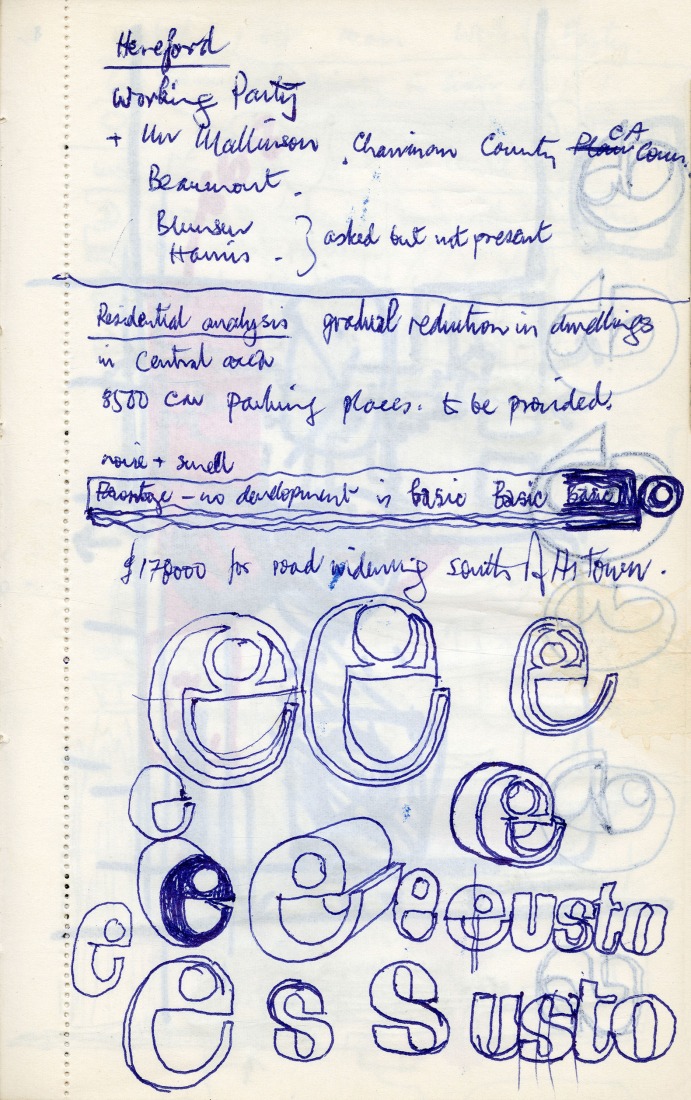 Hereford
Working Party
+ Mr Mallinson, Chairman County Plan CA Coun.
Beaumont.
Harris - } asked but not present
Residential analysis gradual reduction in dwellings
in Central area
8500 car parking places. to be provided.
noise + smell
- no development is basic Basic Basic
£178000 for road widening south of H. Town.
e e e
e e
e e e e eusto
e e s S usto